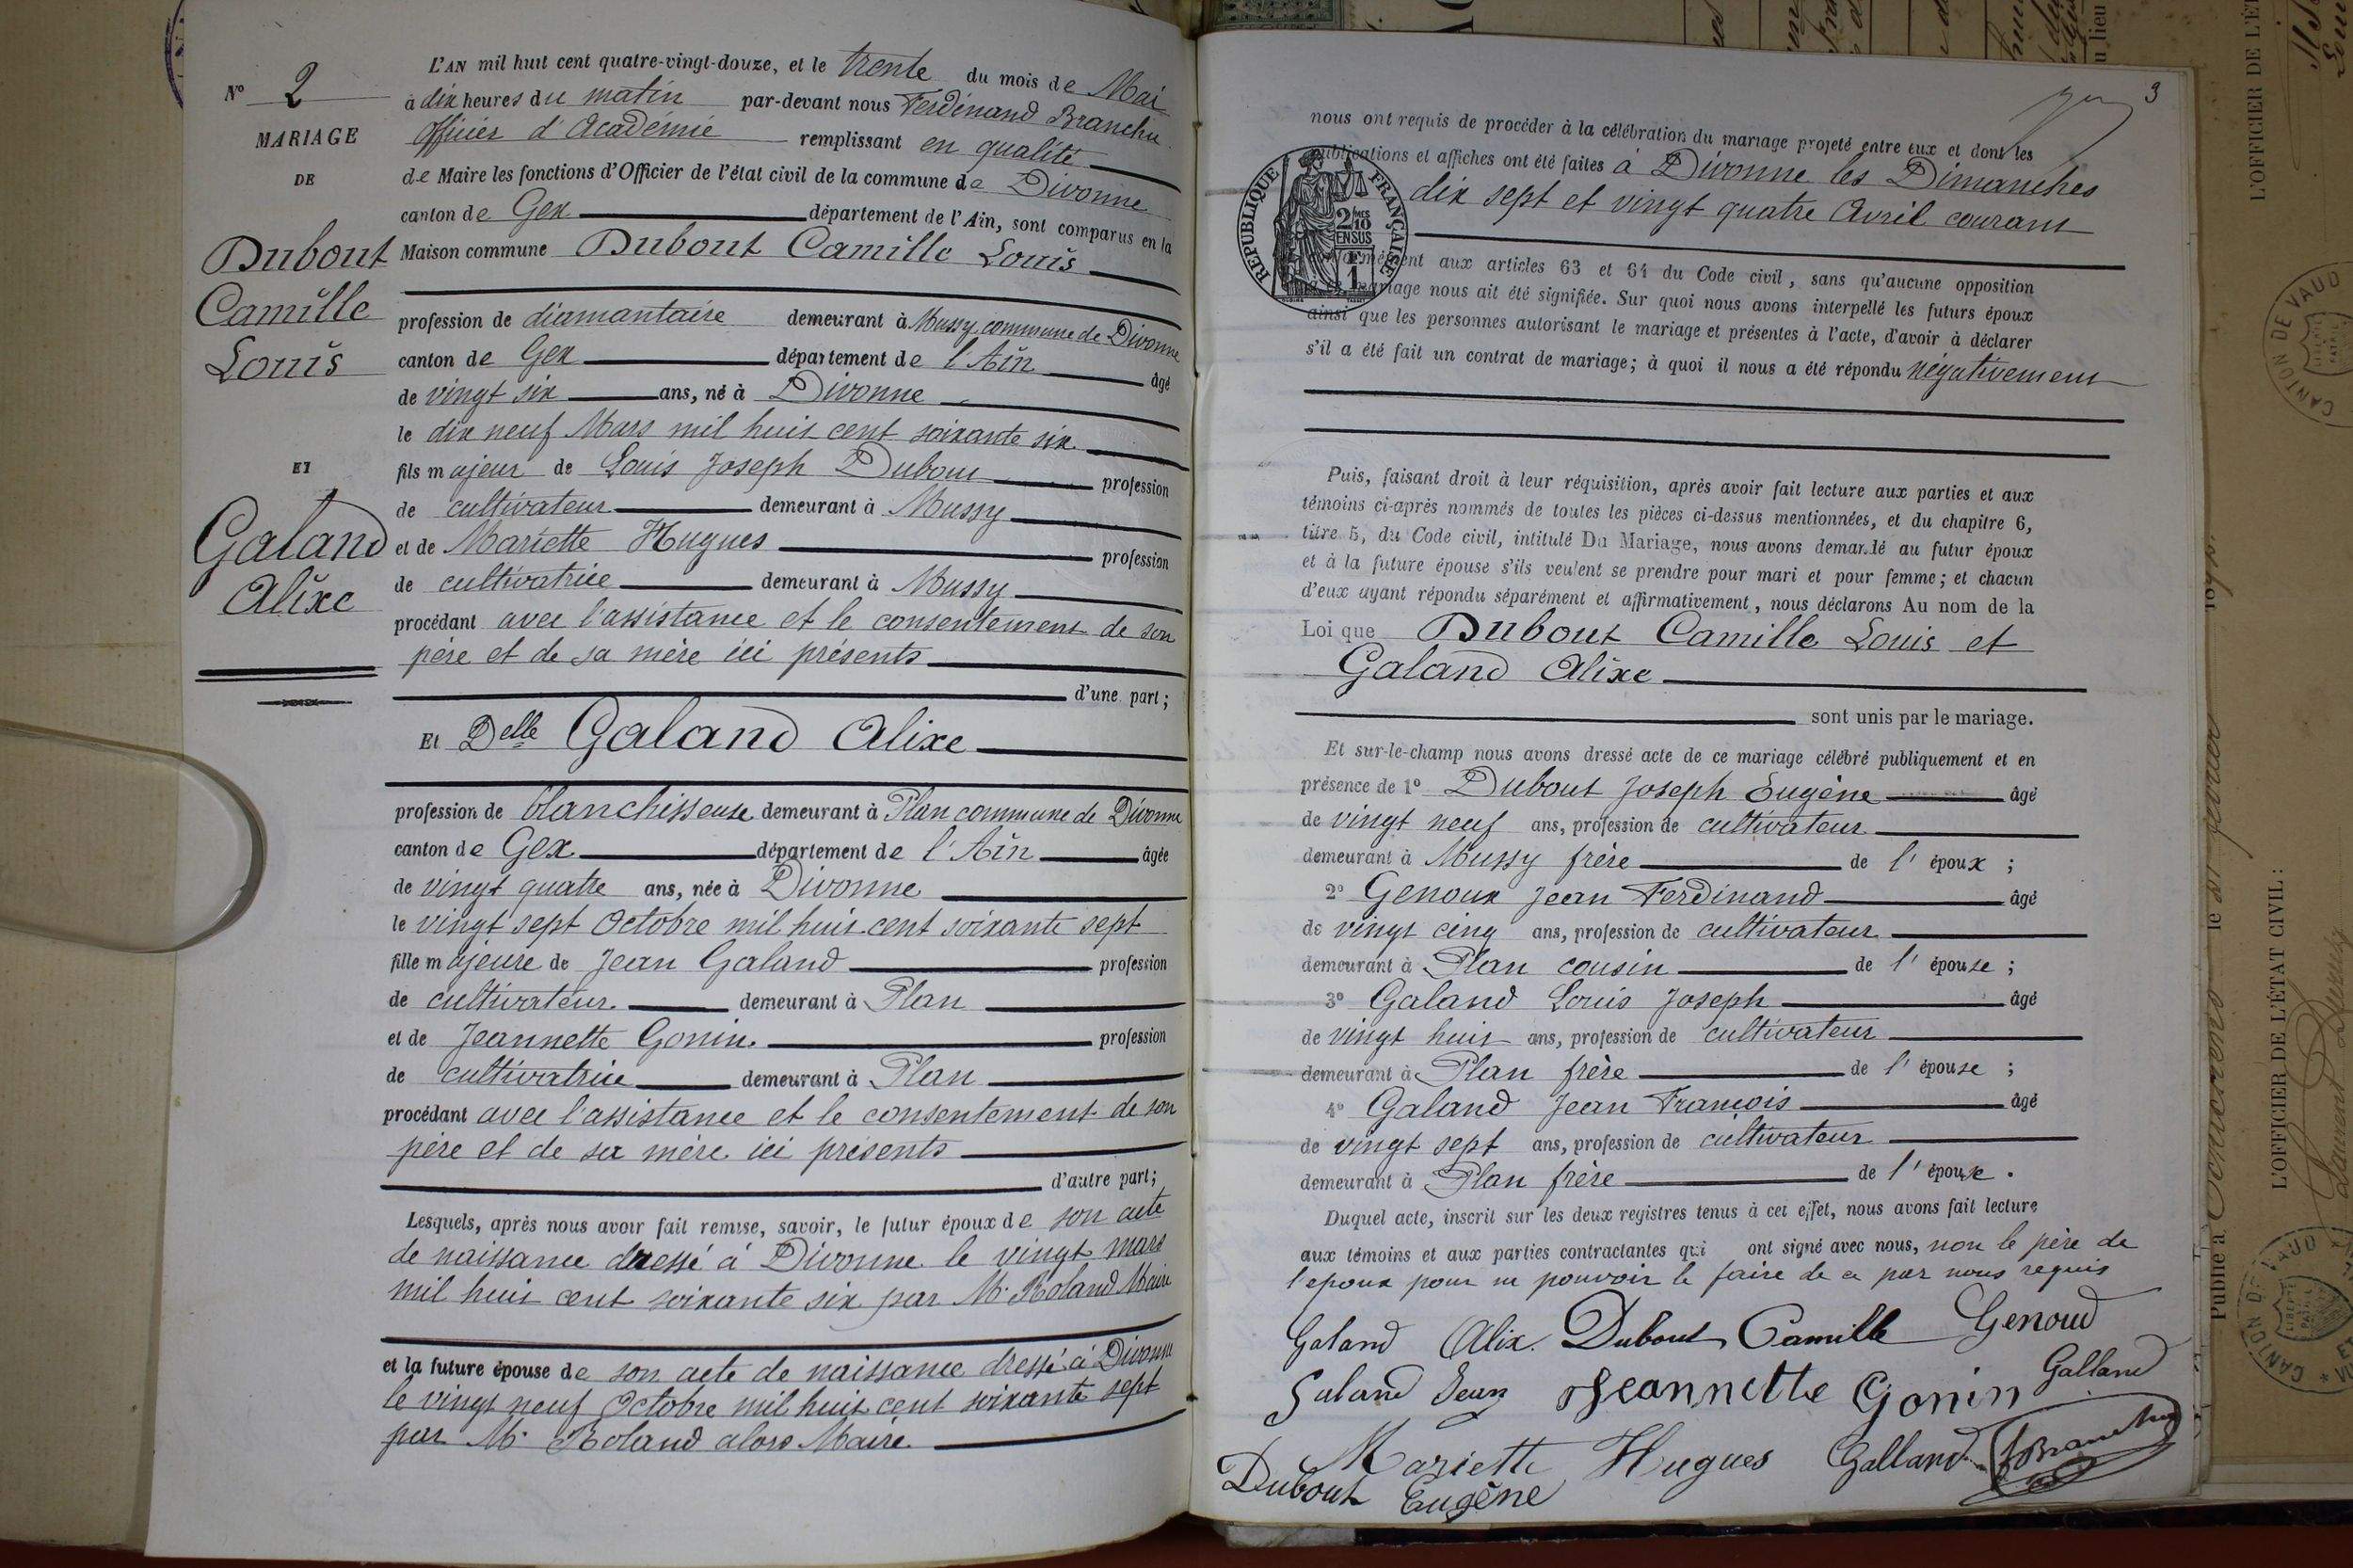 N° 2
MARIAGE
DE
Dubout
Camille
Louis
ET
Galand
Alixe
L'AN mil huit cent quatre-vingt-douze, et le trente du mois de Mai
à dix heures du matin par-devant nous Ferdinand Branchu
officier d'Académie remplissant en qualité
de Maire les fonctions d'Officier de l'état civil de la commune de Divonne
canton de Gex département de l'Ain, sont comparus en la
Maison commune Dubout Camille Louis
profession de diamantaire demeurant à Mussy commune de Divonne
canton de Gex département de l'Ain âgé
de vingt six ans, né à Divonne
le dix neuf Mars mil huit cent soixante six
fils majeur de Louis Joseph Dubout profession
de cultivateur demeurant à Mussy
et de Mariette Hugues profession
de cultivatrice demeurant à Mussy
procédant avec l'assistance et le consentement de son
père et de sa mère ici présents
d'une part;
Et Delle Galand Alixe
profession de blanchisseuse demeurant à Plan commune de Divonne
canton de Gex département de l'Ain âgée
de vingt quatre ans, née à Divonne
le vingt sept Octobre mil huit cent soixante sept
fille majeure de Jean Galand profession
de cultivateur demeurant à Plan
et de Jeannette Gonin profession
de cultivatrice demeurant à Plan
procédant avec l'assistance et le consentement de son
père et de sa mère ici présents
d'autre part;
Lesquels, après nous avoir fait remise, savoir, le futur époux de son acte
de naissance dressé à Divonne le vingt mars
mil huit cent soixante six par Mr Roland Maire
et la future épouse de son acte de naissance dressé à Divonne
le vingt neuf Octobre mil huit cent soixante sept
par Mr Roland alors Maire.
3
nous ont requis de procéder à la célébration du mariage projeté entre eux et dont les
publications et affiches ont été faites à Divonne les Dimanches
dix sept et vingt quatre Avril courant
RÉPUBLIQUE FRANÇAISE
2 MES 10
EN SUS
1
conformément aux articles 63 et 64 du Code civil, sans qu'aucune opposition
mariage nous ait été signifiée. Sur quoi nous avons interpellé les futurs époux
ainsi que les personnes autorisant le mariage et présentes à l'acte, d'avoir à déclarer
s'il a été fait un contrat de mariage; à quoi il nous a été répondu négativement
Puis, faisant droit à leur réquisition, après avoir fait lecture aux parties et aux
témoins ci-après nommés de toutes les pièces ci-dessus mentionnées, et du chapitre 6,
titre 5, du Code civil, intitulé Du Mariage, nous avons demandé au futur époux
et à la future épouse s'ils veulent se prendre pour mari et pour femme; et chacun
d'eux ayant répondu séparément et affirmativement, nous déclarons Au nom de la
Loi que Dubout Camille Louis et
Galand Alixe
sont unis par le mariage.
Et sur-le-champ nous avons dressé acte de ce mariage célébré publiquement et en
présence de 1° Dubout Joseph Eugène âgé
de vingt neuf ans, profession de cultivateur
demeurant à Mussy frère de l'époux ;
2° Genoux Jean Ferdinand âgé
de vingt cinq ans, profession de cultivateur
demeurant à Plan cousin de l'épouse ;
3° Galand Louis Joseph âgé
de vingt huit ans, profession de cultivateur
demeurant à Plan frère de l'épouse ;
4° Galand Jean François âgé
de vingt sept ans, profession de cultivateur
demeurant à Plan frère de l'épouse.
Duquel acte, inscrit sur les deux registres tenus à cet effet, nous avons fait lecture
aux témoins et aux parties contractantes qui ont signé avec nous, non le père de
l'époux pour ne pouvoir le faire de ce par nous requis
Galand Alix. Dubout Camille Genoud
Galand Jean Jeannette Gonin Galland
Mariette Hugues Galland Branchu
Dubout Eugène
L'OFFICIER DE L'ÉT
CANTON DE VAUD
L'OFFICIER DE L'ÉTAT CIVIL :
Publié à
CANTON DE VAUD